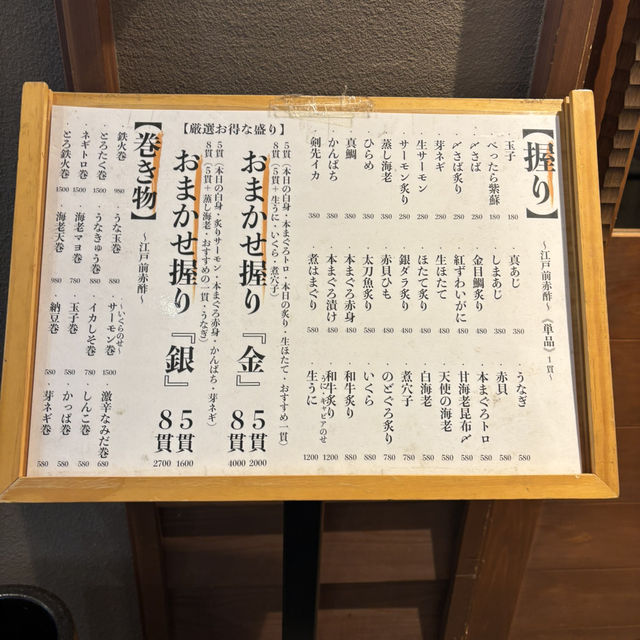 【握り】
～江戸前赤酢～
《単品》1貫～
・玉子 180
・べったら紫蘇 180
・〆さば 280
・〆さば炙り 280
・芽ネギ 280
・生サーモン 280
・サーモン炙り 280
・蒸し海老 380
・ひらめ 380
・真鯛 380
・かんぱち 380
・剣先イカ 380
・真あじ 380
・しまあじ 380
・金目鯛炙り 480
・紅ずわいがに 480
・生ほたて 480
・ほたて炙り 480
・銀ダラ炙り 480
・赤貝ひも 480
・太刀魚炙り 480
・本まぐろ赤身 480
・本まぐろ漬け 480
・煮はまぐり 580
・うなぎ 580
・赤貝 580
・本まぐろトロ 580
・甘海老昆布〆 580
・天使の海老 580
・白海老 580
・煮穴子 780
・のどぐろ炙り 780
・いくら 880
・和牛炙り 880
・和牛炙り 1200
うに・キャビアのせ
・生うに 1200
【厳選お得な盛り】
おまかせ握り『金』 5貫 2000
8貫 4000
5貫（本日の白身・本まぐろトロ・本日の炙り・生ほたて・おすすめ一貫）
8貫（5貫＋生うに・いくら・煮穴子）
おまかせ握り『銀』 5貫 1600
8貫 2700
5貫（本日の白身・炙りサーモン・本まぐろ赤身・かんぱち・芽ネギ）
8貫（5貫＋蒸し海老・おすすめの一貫・うなぎ）
【巻き物】
～江戸前赤酢～
・鉄火巻 980
・とろたく巻 1500
・ネギトロ巻 1500
・とろ鉄火巻 1500
・うな玉巻 880
・うなきゅう巻 880
・海老マヨ巻 780
・海老天巻 980
～いくらのせ～
・サーモン巻 1500
・イカしそ巻 780
・玉子巻 580
・納豆巻 580
・激辛なみだ巻 680
・しんこ巻 580
・かっぱ巻 580
・芽ネギ巻 580